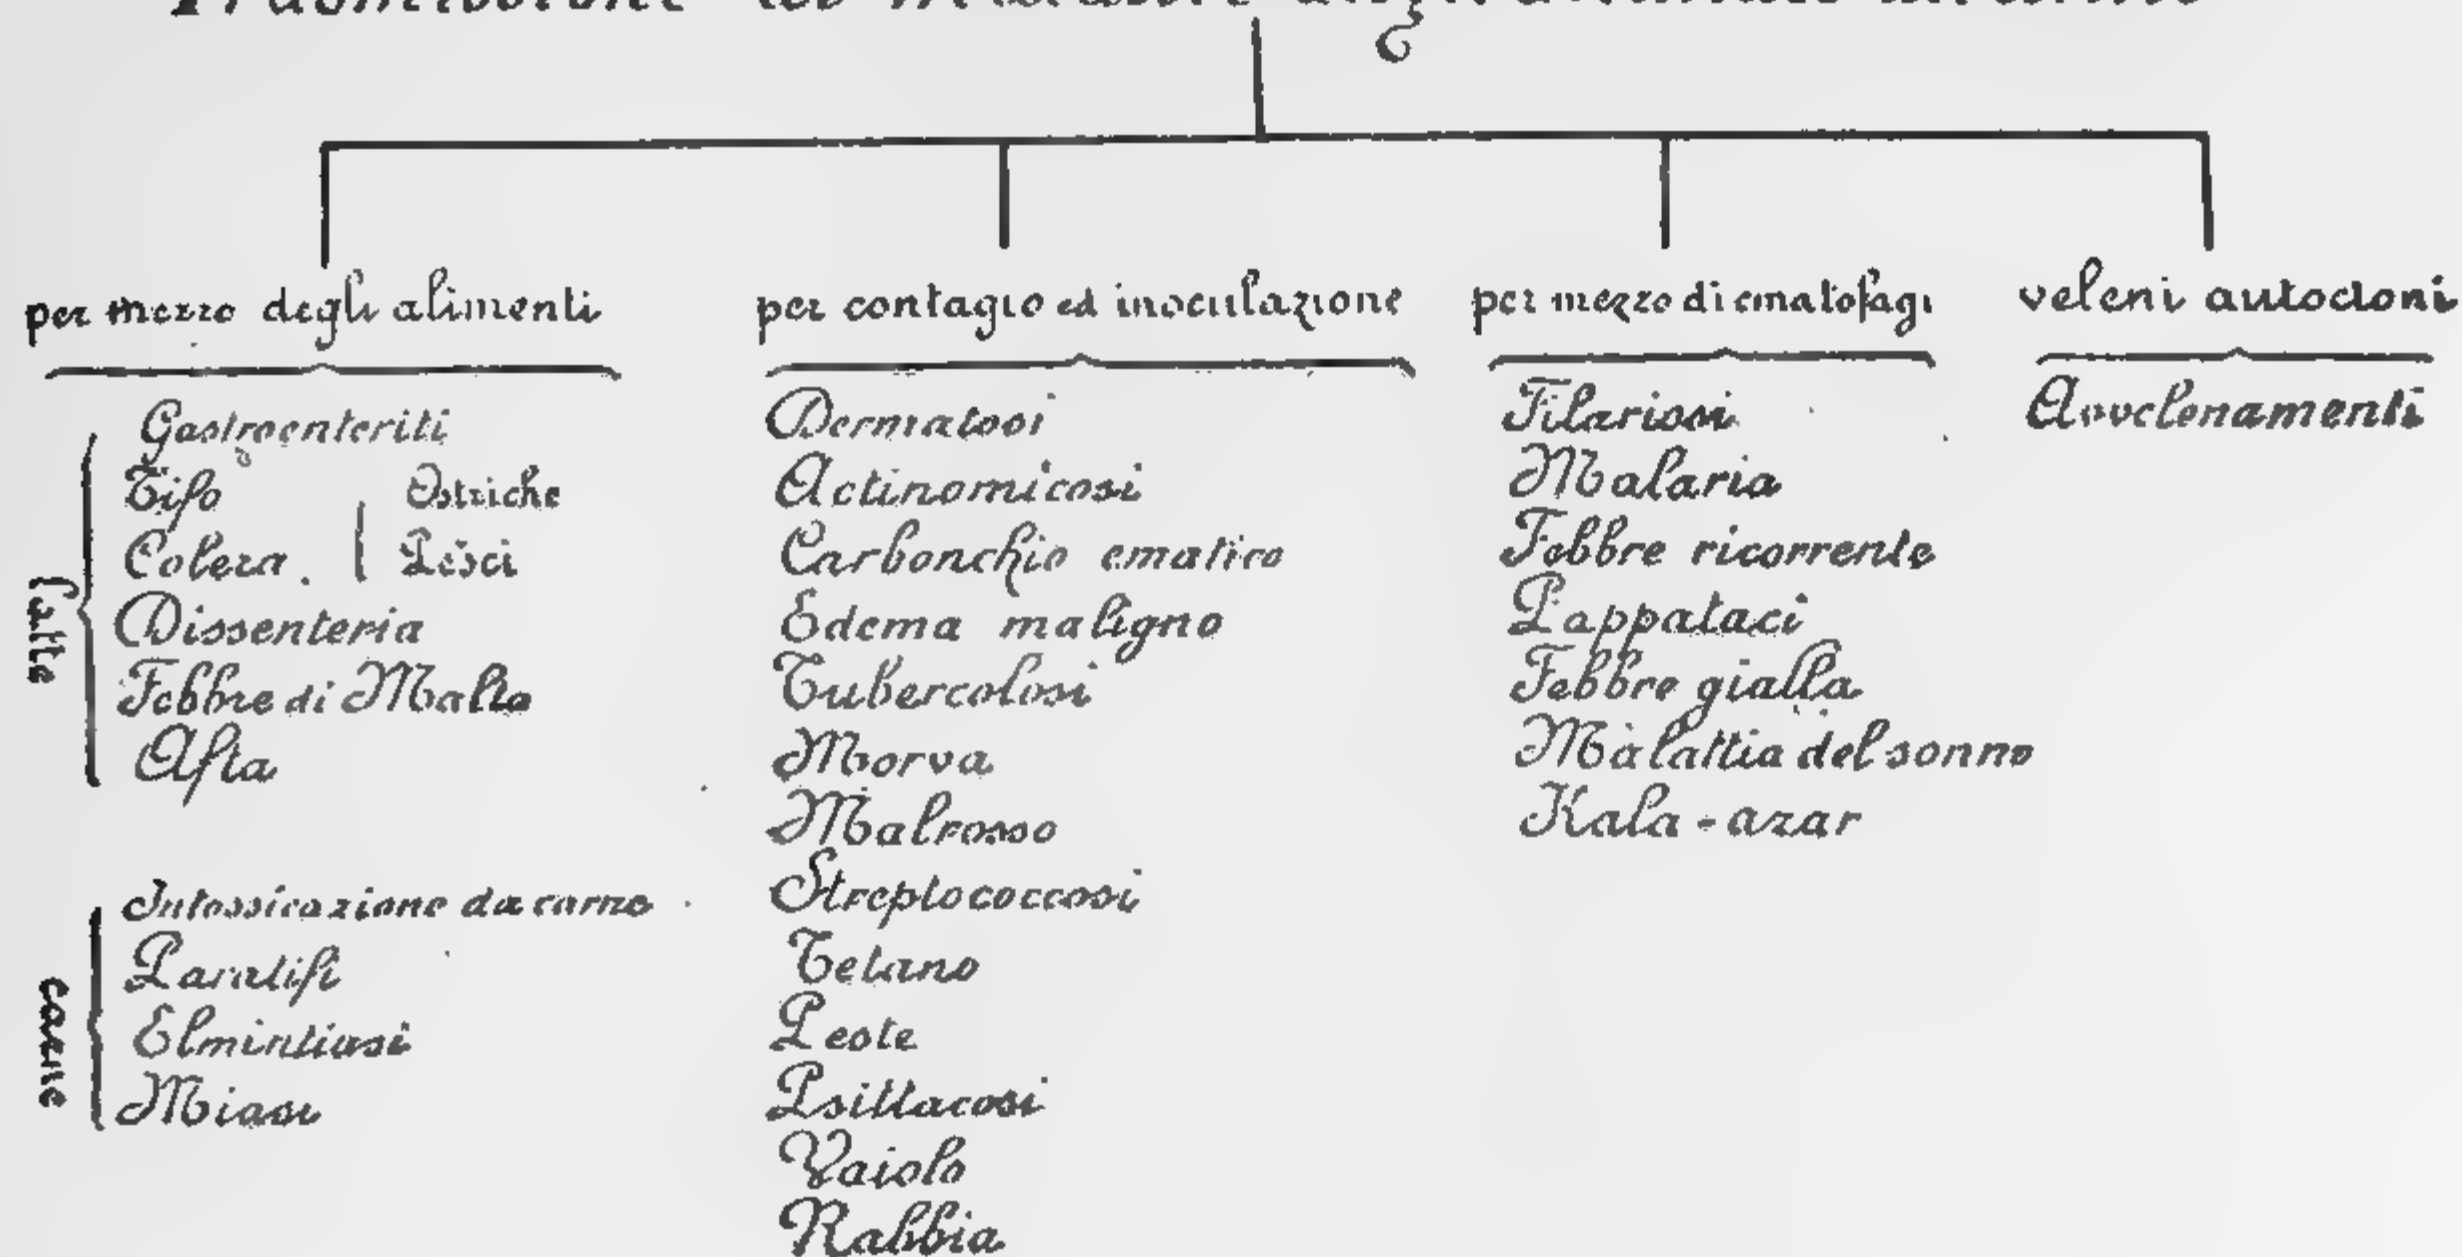 per mezzo degli alimenti
Latte
Gastroenteriti
Tifo
Colera.
Ostriche
Pesci
Dissenteria
Febbre di Malta
Afta
carne
Intossicazione da carne
Paratifi
Elmintiasi
Miasi
per contagio ed inoculazione
Dermatosi
Actinomicosi
Carbonchio ematico
Edema maligno
Tubercolosi
Morva
Malrosso
Streptococcosi
Tetano
Peste
Psittacosi
Vaiolo
Rabbia
per mezzo di ematofagi
Filariosi
Malaria
Febbre ricorrente
Pappataci
Febbre gialla
Malattia del sonno
Kala-azar
veleni autoctoni
Avvelenamenti